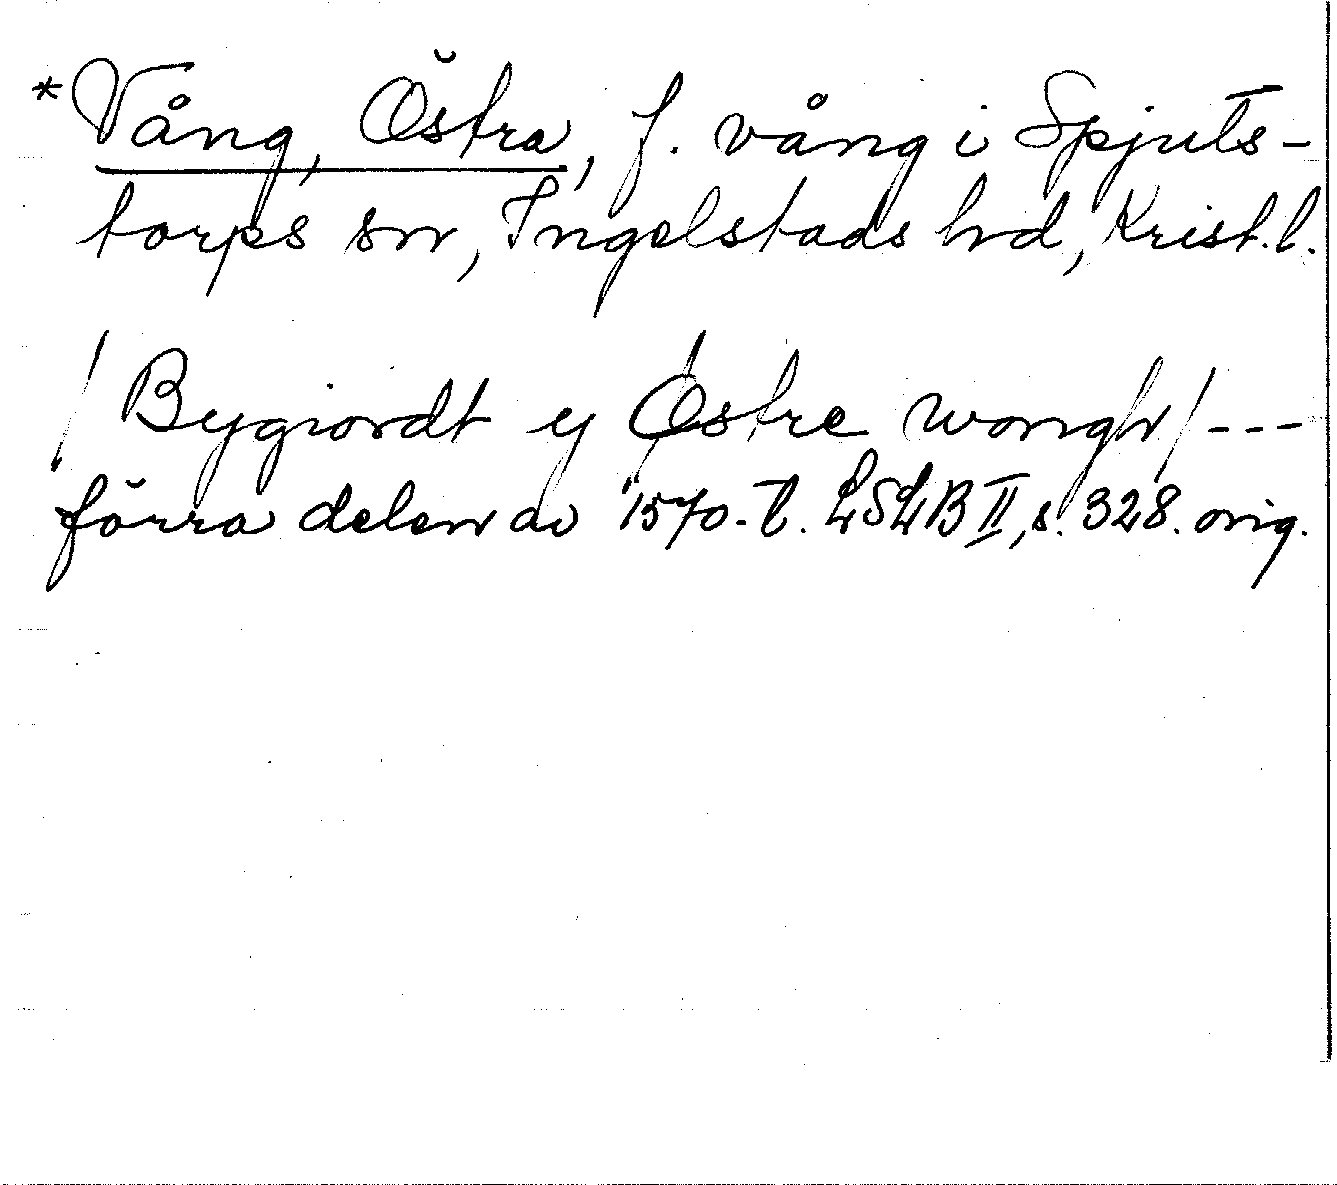 *Vång, Östra, f. vång i Spjuts-
torps sn, Ingelstads hd, Krist.l.
/Bygiordt ij Østre wongh/ ---
förra delen av 1570-t. LSLB II, s. 328. orig.